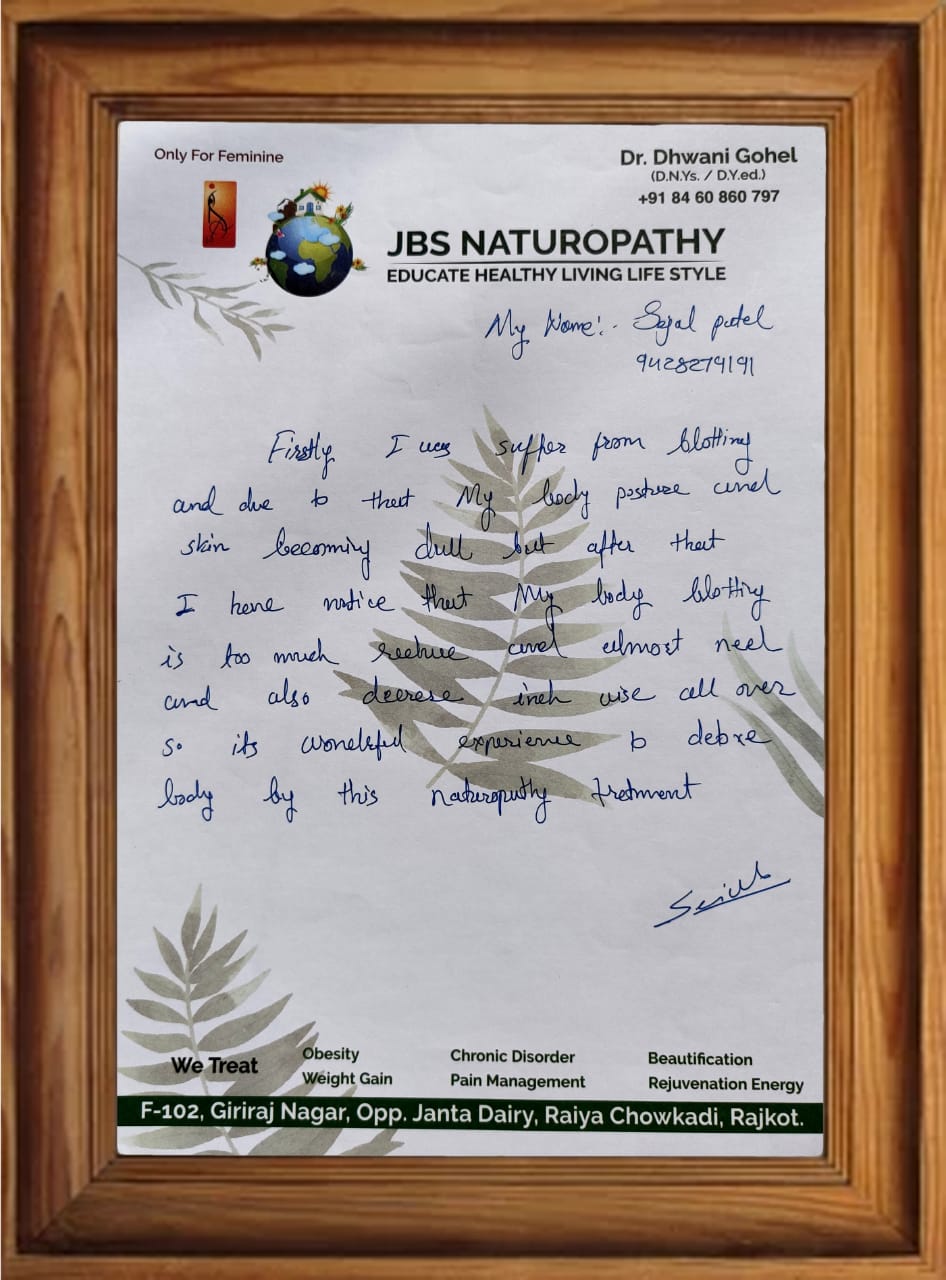 Only For Feminine
Dr. Dhwani Gohel
(D.N.Ys. / D.Y.ed.)
+91 84 60 860 797
JBS NATUROPATHY
EDUCATE HEALTHY LIVING LIFE STYLE
My Name:- Sejal patel
9428279191
Firstly I was suffer from blotting
and due to that My body posture and
skin becoming dull but after that
I have notice that My body blotting
is too much reduce and almost neel
and also decrese inch wise all over
so its wonderful experience to
body by this naturopathy tretment
We Treat
Obesity
Weight Gain
Chronic Disorder
Pain Management
Beautification
Rejuvenation Energy
F-102, Giriraj Nagar, Opp. Janta Dairy, Raiya Chowkadi, Rajkot.